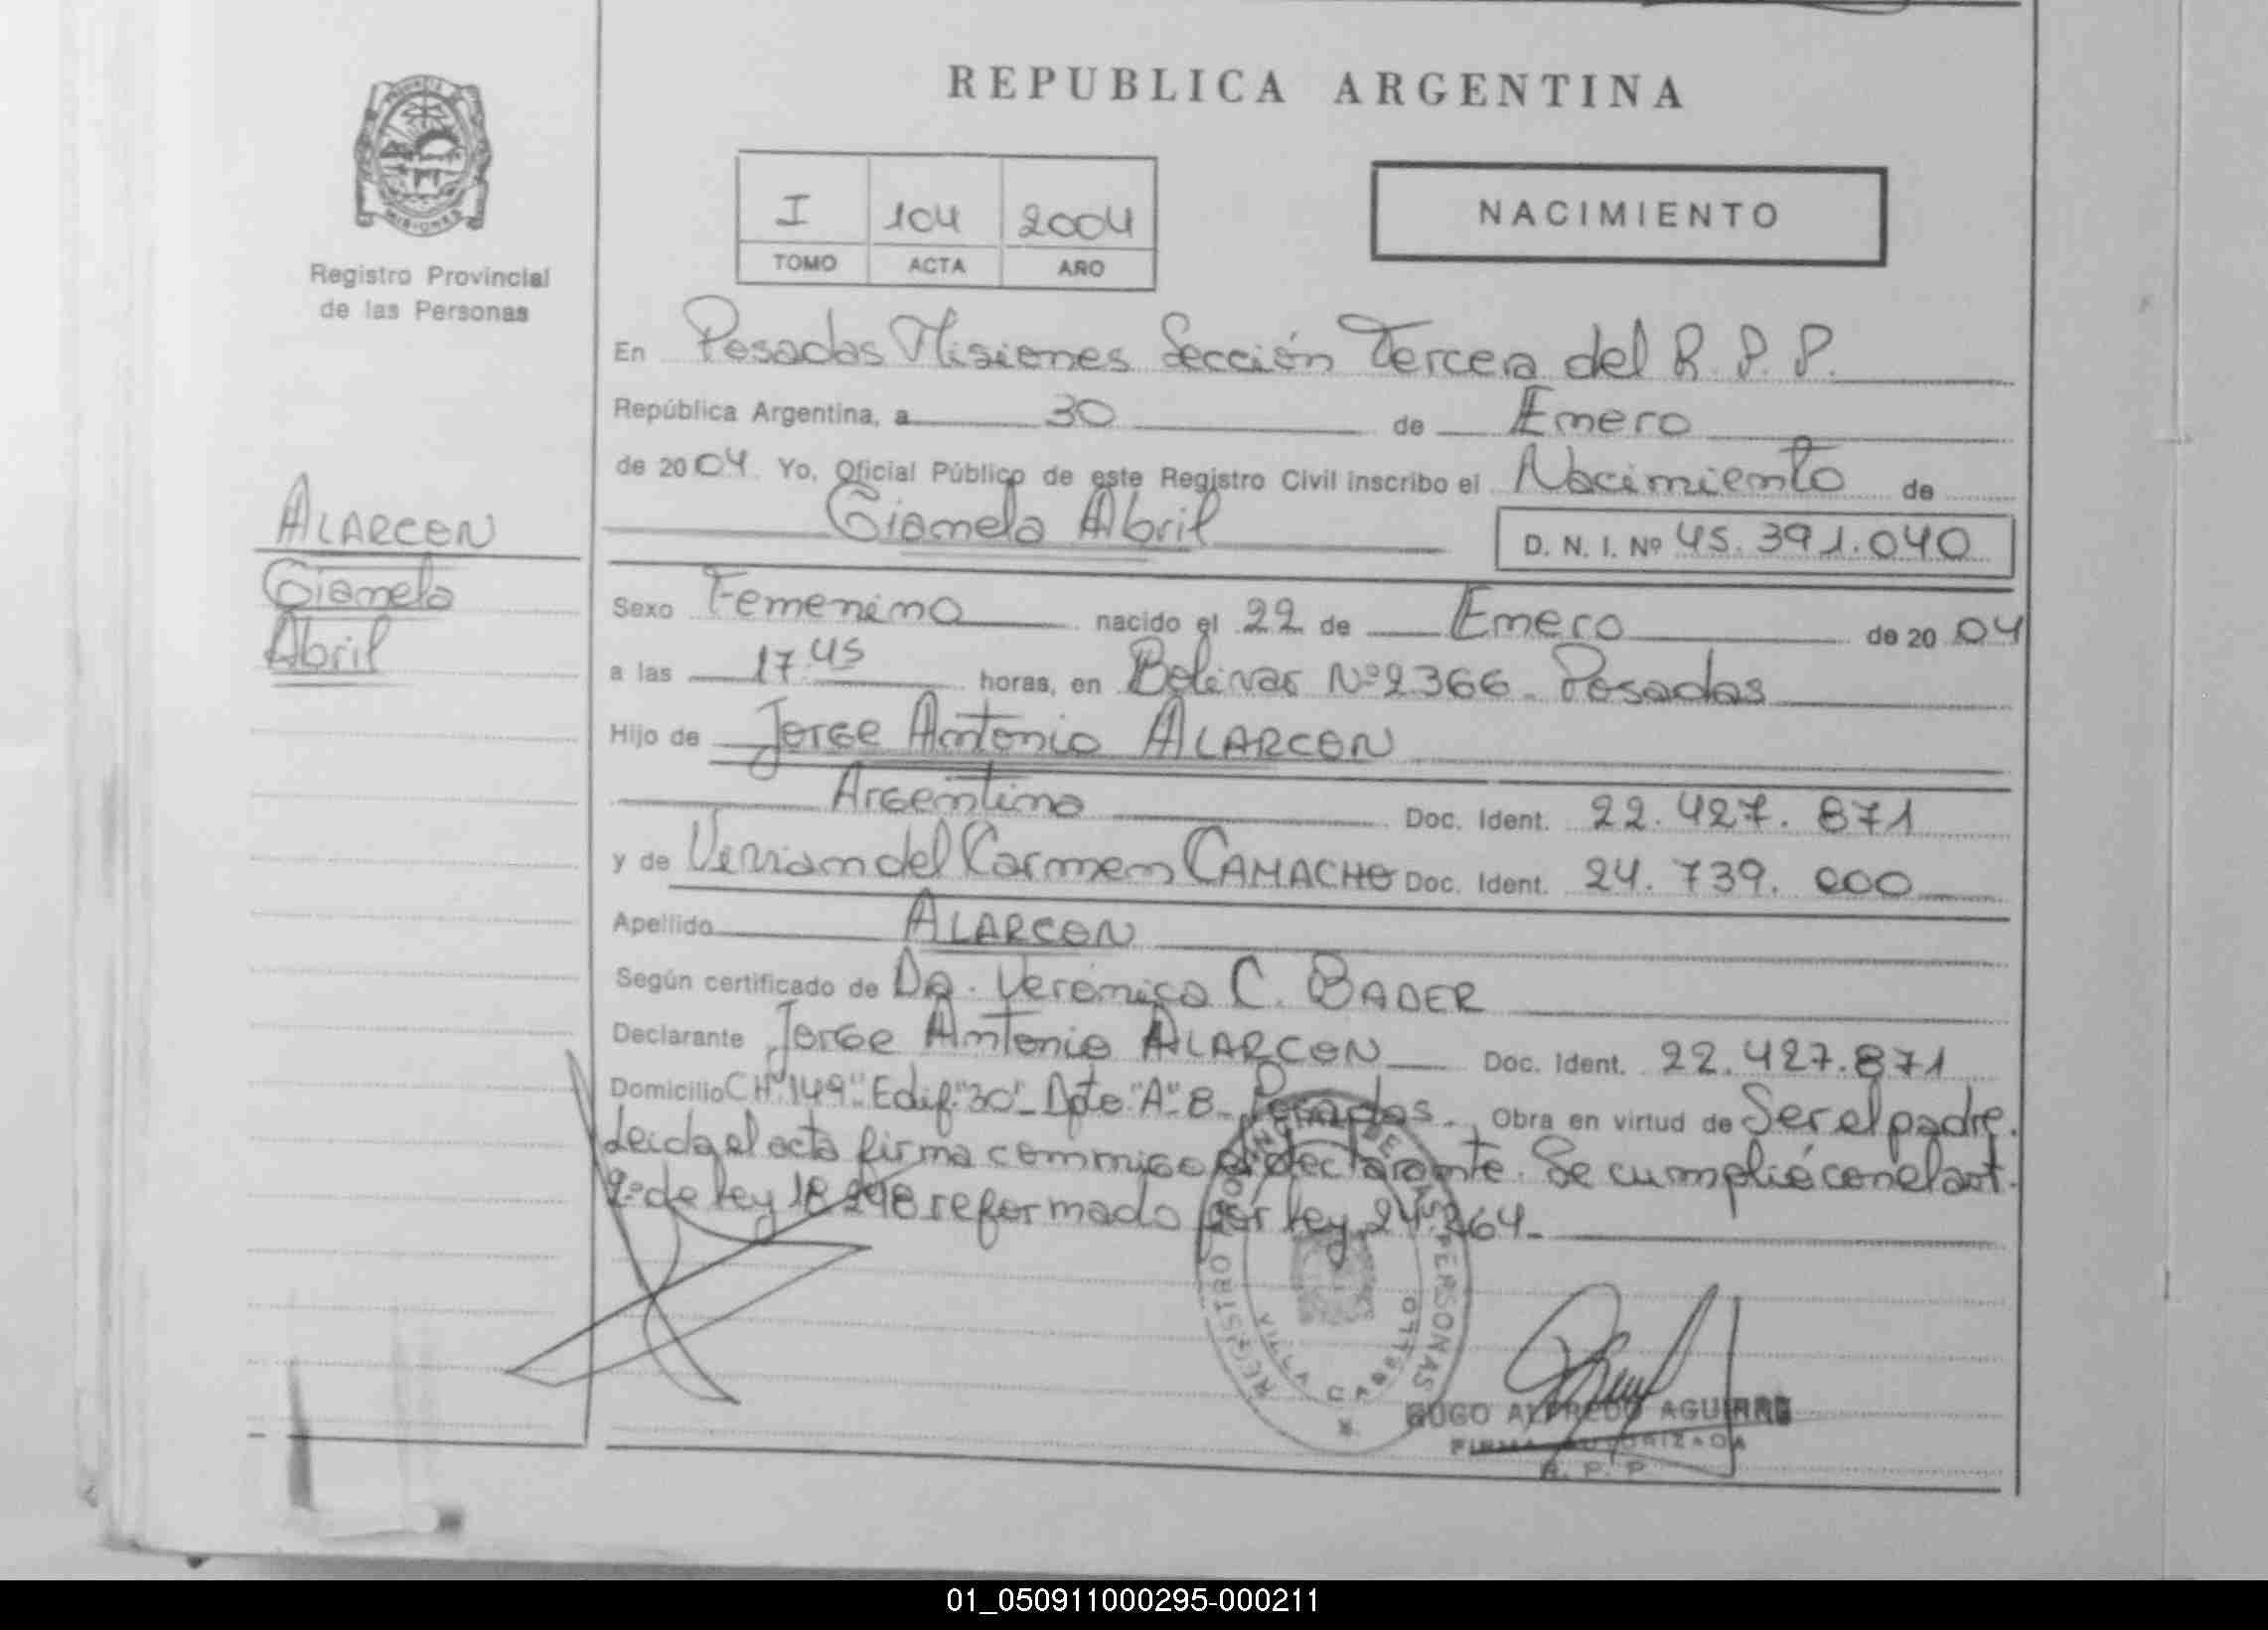 REPUBLICA ARGENTINA
PROVINCIA DE
MISIONES
Registro Provincial
de las Personas
I 104 2004
TOMO ACTA AÑO
NACIMIENTO
En Posadas Misiones Sección Tercera del R. P. P.
República Argentina, a 30 de Enero
de 2004 Yo, Oficial Público de este Registro Civil inscribo el Nacimiento de
Gianela Abril D. N. I. Nº 45.391.040
ALARCON
Gianela
Abril
Sexo Femenino nacido el 22 de Enero de 2004
a las 17.45 horas, en Bolivar Nº 2366 - Posadas
Hijo de Jorge Antonio ALARCON
Argentino Doc. Ident. 22.427.871
y de Viviam del Carmen CAMACHO Doc. Ident. 24.739.000
Apellido ALARCON
Según certificado de Da. Verónica C. BADER
Declarante Jorge Antonio ALARCON Doc. Ident. 22.427.871
Domicilio CH "149" Edif. "30" - Dpto "A" - 8 - Posadas. Obra en virtud de Ser el padre.
Leida el acta firma conmigo el declarante. Se cumplió con el art.
9º de ley 18.248 reformado por ley 24.264.-
REGISTRO PROVINCIAL DE LAS PERSONAS
VILLA CABELLO
HUGO ALFREDO AGUIRRE
FIRMA AUTORIZADA
R. P. P.
01_050911000295-000211